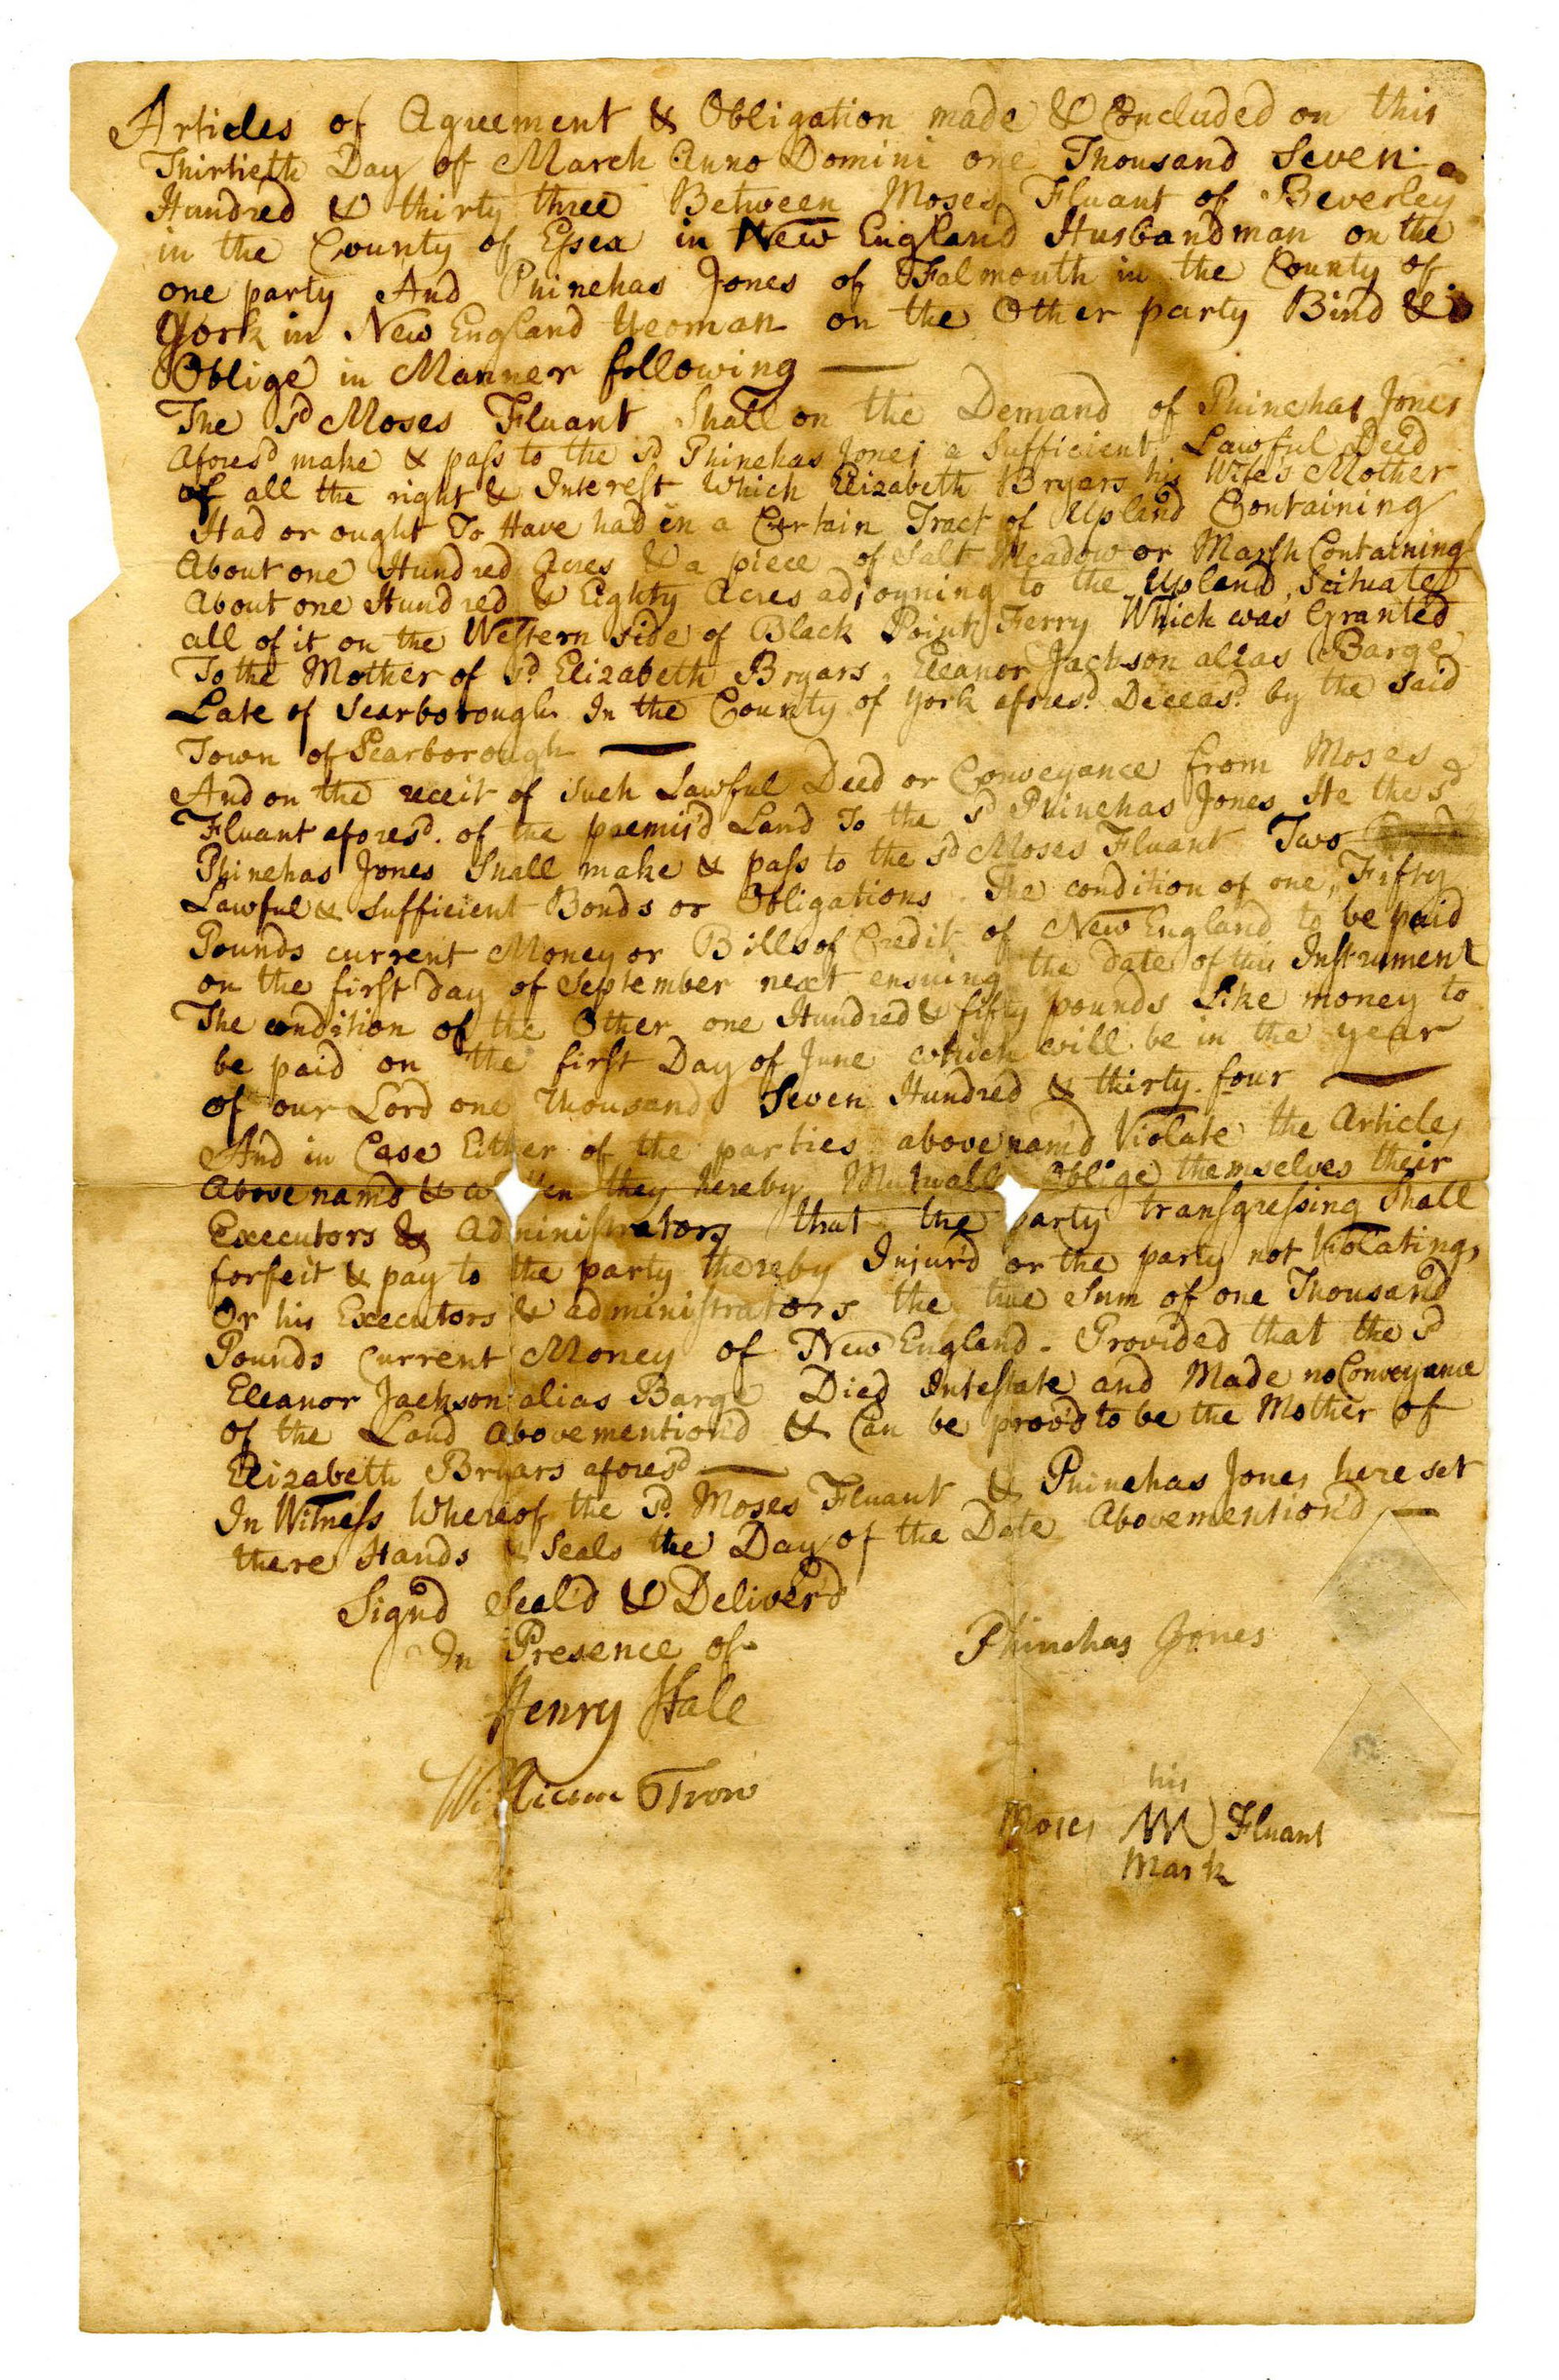 Articles of Agreement & Obligation made & Concluded on this
Thirtieth Day of March Anno Domini one Thousand Seven
Hundred & thirty three Between Moses Fluant of Beverley
in the County of Essex in New England Husbandman on the
one party And Phinehas Jones of Falmouth in the County of
York in New England Yeoman on the Other party Bind &
Oblige in Manner following
The sd Moses Fluant Shall on the Demand of Phinehas Jones
aforesd make & pass to the sd Phinehas Jones a Sufficient Lawful Deed
of all the right & Interest which Elizabeth Bryars his Wifes Mother
Had or ought To Have had in a Certain Tract of Upland Containing
About one Hundred Acres & a piece of Salt Meadow or Marsh Containing
About one Hundred & Eighty Acres adjoyning to the Upland Scituate
all of it on the Western side of Black Point Ferry Which was Granted
To the Mother of sd Elizabeth Bryars, Eleanor Jackson alias Barge
Late of Scarborough In the County of York aforesd. Deceasd. by the said
Town of Scarborough
And on the receit of such Lawful Deed or Conveyance from Moses
Fluant aforesd. of the premis'd Land To the sd Phinehas Jones He the sd
Phinehas Jones Shall make & pass to the sd Moses Fluant Two
Lawful & sufficient Bonds or Obligations. The condition of one, Fifty
Pounds current Money or Bills of Credit of New England to be paid
on the first day of September next ensuing the date of this Instrument
The condition of the Other one Hundred & fifty pounds Like money to
be paid on the first Day of June which will be in the year
of our Lord one Thousand Seven Hundred & thirty four
And in Case Either of the parties above nam'd Violate the Articles
Above nam'd & they hereby Mutuall Oblige themselves their
Executors & Administrators that the party transgressing Shall
forfeit & pay to the party thereby Injur'd or the party not Violating,
Or his Executors & administrators the true Sum of one Thousand
Pounds Current Money of New England. Provided that the sd
Eleanor Jackson alias Barge Died Intestate and Made no Conveyance
of the Land Abovemention'd & Can be prov'd to be the Mother of
Elizabeth Bryars aforesd
In Witness Whereof the sd. Moses Fluant & Phinehas Jones here set
there Hands & Seals the Day of the Date Abovemention'd
Sign'd Seal'd & Deliver'd
In Presence of
Phinehas Jones
Henry Hale
William Trow
his
Moses M Fluant
Mark